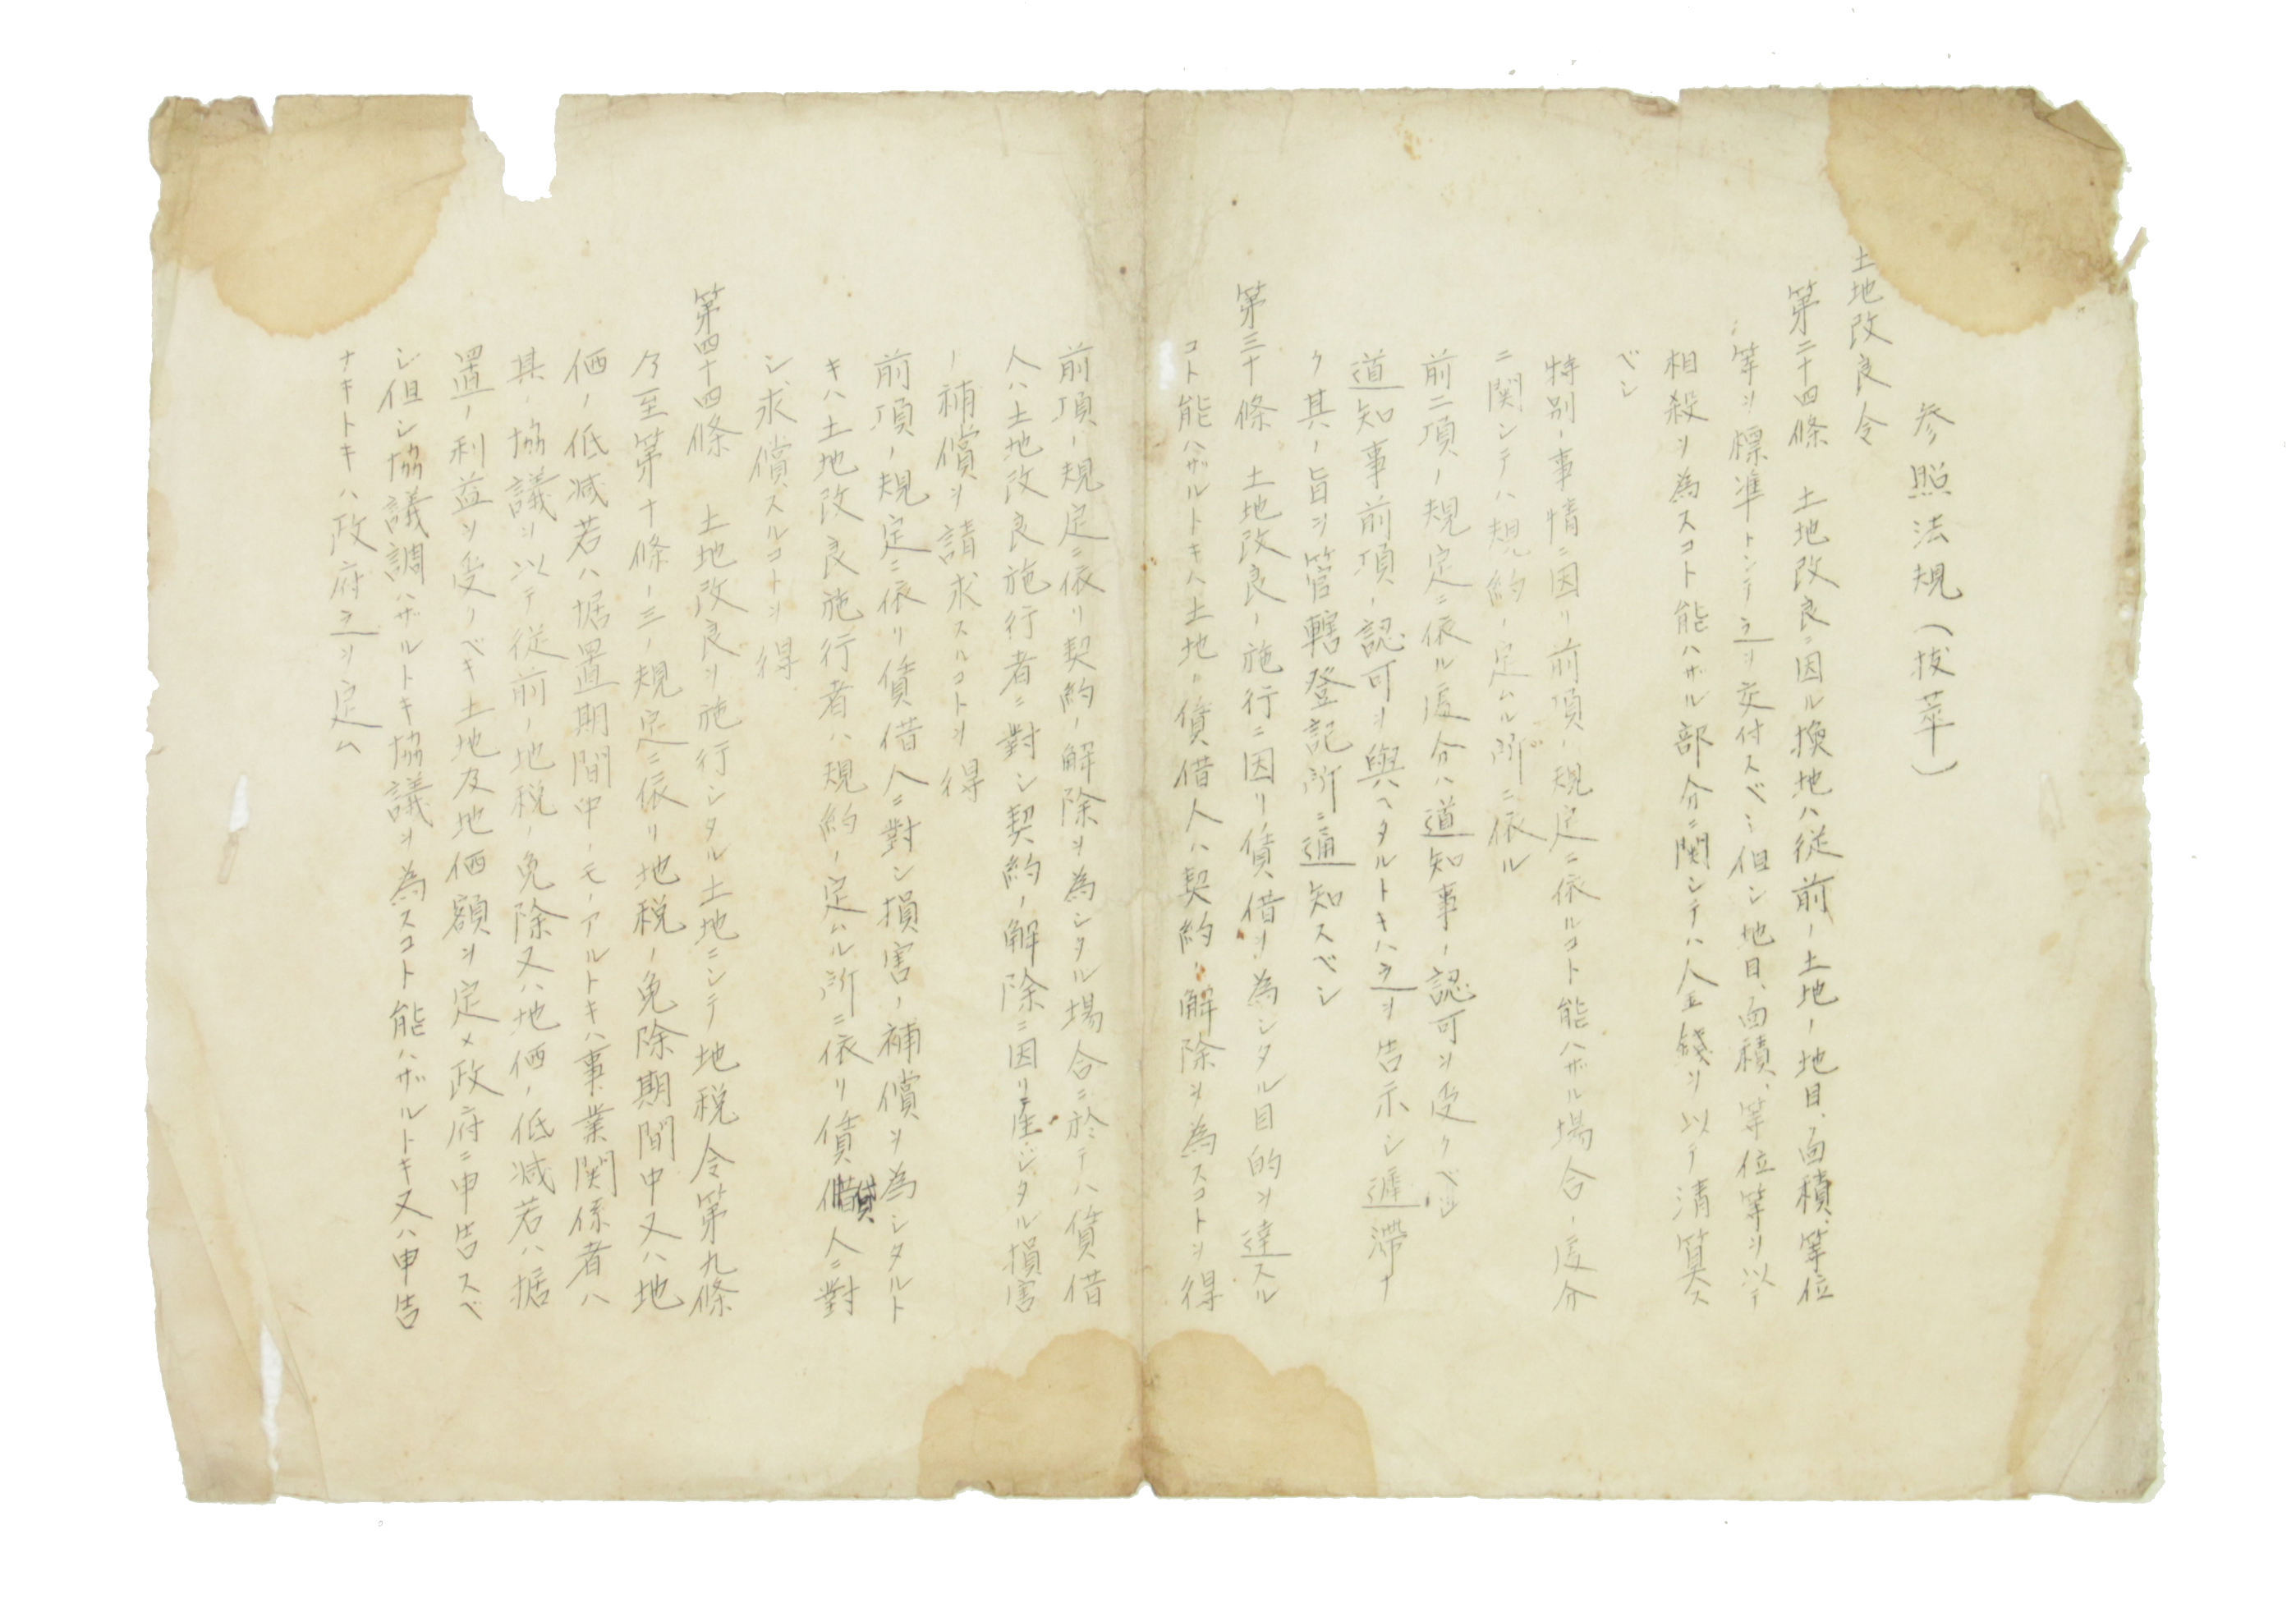 参照法規（抜萃）
土地改良令
第二十四條　土地改良ニ因ル換地ハ従前ノ土地ノ地目、面積、等位
等ヲ標準トシテ之ヲ交付スベシ但シ地目、面積、等位等ヲ以テ
相殺ヲ為スコト能ハザル部分ニ関シテハ金錢ヲ以テ清算ス
ベシ
特別ノ事情ニ因リ前項ノ規定ニ依ルコト能ハザル場合ノ處分
ニ関シテハ規約ノ定ムル所ニ依ル
前二項ノ規定ニ依ル處分ハ道知事ノ認可ヲ受クベシ
道知事前項ノ認可ヲ與ヘタルトキハ之ヲ告示シ遲滞ナ
ク其ノ旨ヲ管轄登記所ニ通知スベシ
第三十條　土地改良ノ施行ニ因リ賃借ヲ為シタル目的ヲ達スル
コト能ハザルトキハ土地ノ賃借人ハ契約ノ解除ヲ為スコトヲ得
前項ノ規定ニ依リ契約ノ解除ヲ為シタル場合ニ於テハ賃借
人ハ土地改良施行者ニ對シ契約ノ解除ニ因リ産ジタル損害
ノ補償ヲ請求スルコトヲ得
前項ノ規定ニ依リ賃借人ニ對シ損害ノ補償ヲ為シタルト
キハ土地改良施行者ハ規約ノ定ムル所ニ依リ賃貸人ニ對
シ求償スルコトヲ得
第四十四條　土地改良ヲ施行シタル土地ニシテ地税令第九條
乃至第十條ノ三ノ規定ニ依リ地税ノ免除期間中又ハ地
価ノ低減若ハ据置期間中ノモノアルトキハ事業関係者ハ
其ノ協議ヲ以テ従前ノ地税ノ免除又ハ地価ノ低減若ハ据
置ノ利益ヲ受クベキ土地及地価額ヲ定メ政府ニ申告スベ
シ但シ協議調ハザルトキ協議ヲ為スコト能ハザルトキ又ハ申告
ナキトキハ政府之ヲ定ム